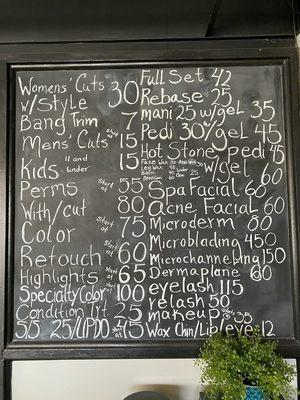 Womens' Cuts
w/Style 30
Bang Trim 7
Mens' Cuts start at 15
Kids 11 and under 15
Perms start at 55
With/cut 80
Color start at 75
Retouch start at 60
Highlights start at 65
Specialty Color start at 100
Condition Trt 25
S/S 25/UPDO start at 45
Full Set 42
Rebase 25
mani 25 w/gel 35
Pedi 30 w/geL 45
Hot Stone Pedi 45
w/gel 60
Spa Facial 60
Acne Facial 60
Microderm 60
Microblading 450
Microchanneling 150
Dermaplane 60
eyelash 115
relash 50
makeup start at 35
Wax Chin/Lip/eye 12